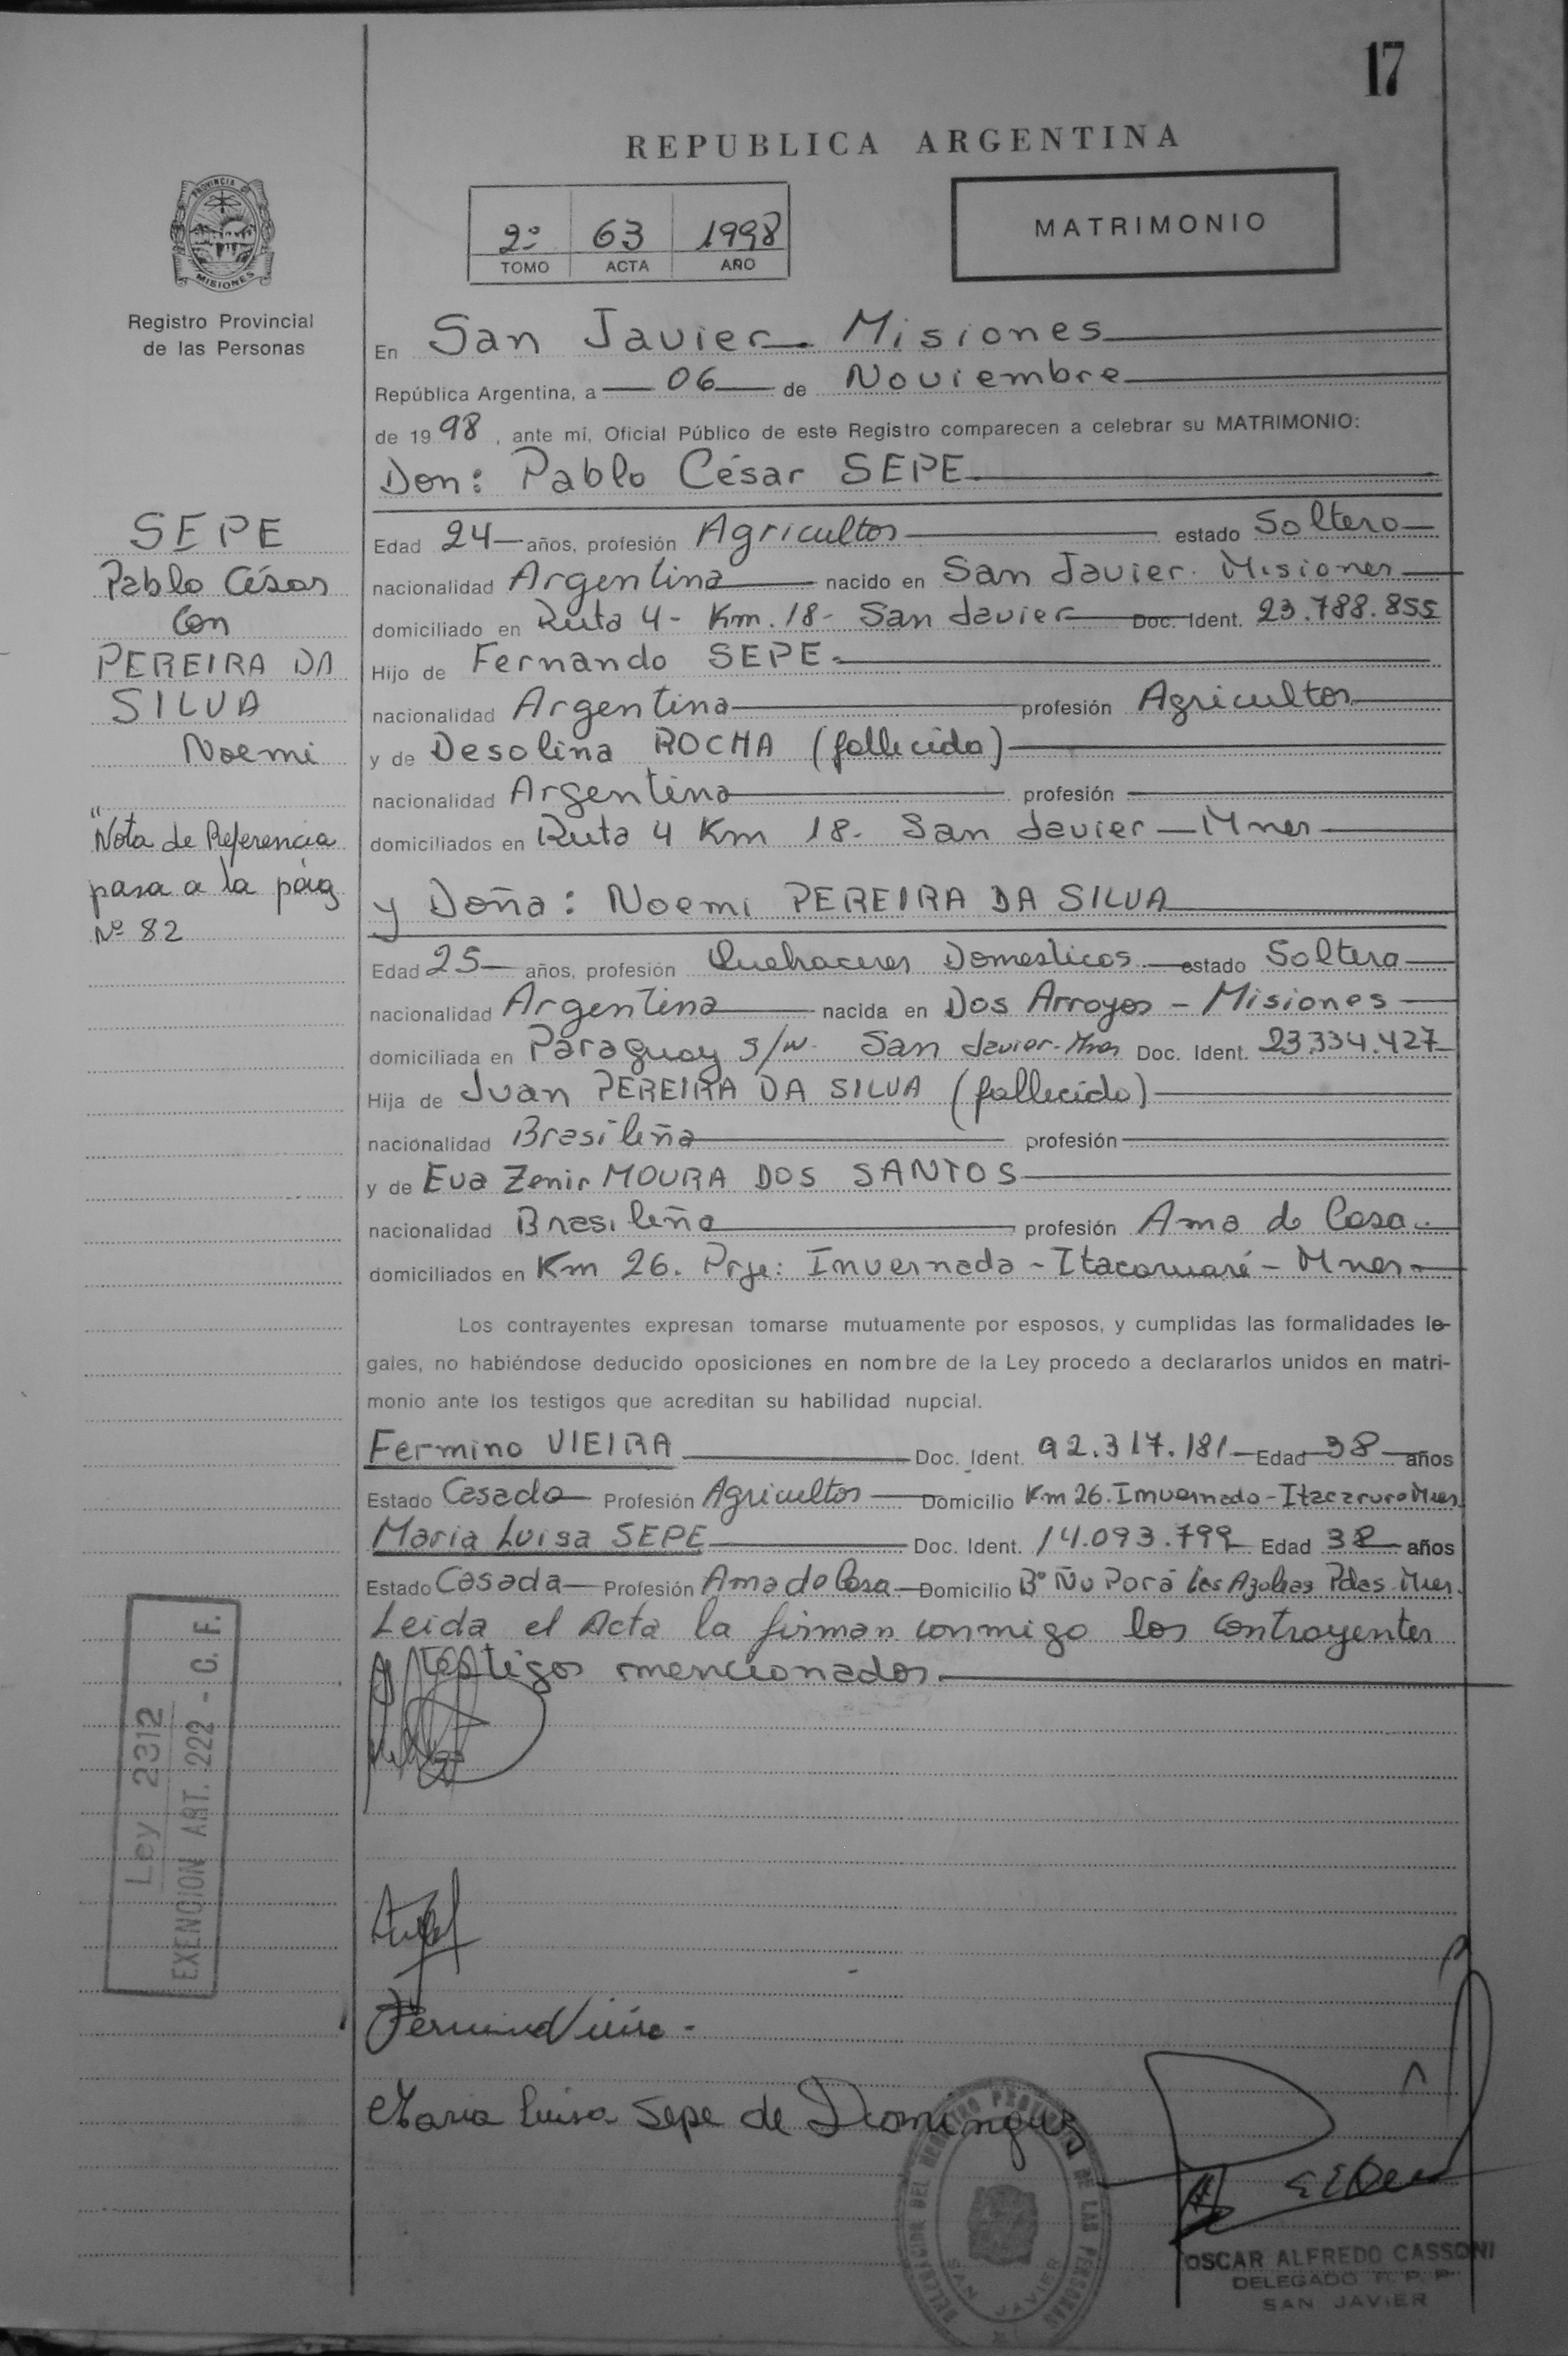 17
REPUBLICA ARGENTINA
2º 63 1998
TOMO ACTA AÑO
MATRIMONIO
PROVINCIA DE
MISIONES
Registro Provincial
de las Personas
En San Javier. Misiones
República Argentina, a 06 de Noviembre
de 1998, ante mí, Oficial Público de este Registro comparecen a celebrar su MATRIMONIO:
Don: Pablo César SEPE
Edad 24 años, profesión Agricultor estado Soltero
nacionalidad Argentina nacido en San Javier. Misiones
domiciliado en Ruta 4 - Km. 18 - San Javier Doc. Ident. 23.788.855
Hijo de Fernando SEPE.
nacionalidad Argentina profesión Agricultor
y de Desolina ROCHA (fallecida)
nacionalidad Argentina profesión
domiciliados en Ruta 4 Km 18. San Javier - Mnes
y Doña: Noemi PEREIRA DA SILVA
Edad 25 años, profesión Quehaceres Domesticos estado Soltera
nacionalidad Argentina nacida en Dos Arroyos - Misiones
domiciliada en Paraguay s/n. San Javier - Mnes Doc. Ident. 23.334.427
Hija de Juan PEREIRA DA SILVA (fallecido)
nacionalidad Brasileña profesión
y de Eva Zenir MOURA DOS SANTOS
nacionalidad Brasileña profesión Ama de Casa.
domiciliados en Km 26. Prje: Invernada - Itacaruaré - Mnes
Los contrayentes expresan tomarse mutuamente por esposos, y cumplidas las formalidades le-
gales, no habiéndose deducido oposiciones en nombre de la Ley procedo a declararlos unidos en matri-
monio ante los testigos que acreditan su habilidad nupcial.
Fermino VIEIRA Doc. Ident. 92.317.181 Edad 38 años
Estado Casado Profesión Agricultor Domicilio Km 26. Invernada - Itacaruaré Mnes
Maria Luisa SEPE Doc. Ident. 14.093.799 Edad 38 años
Estado Casada Profesión Ama de Casa Domicilio Bº Ñu Porá Las Azaleas Pdas. Mnes.
Leida el Acta la firman conmigo los contrayentes
y testigos mencionados.
Maria Luisa Sepe de Dominguez
SEPE
Pablo César
Con
PEREIRA DA
SILVA
Noemi
"Nota de Referencia
pasa a la pág
Nº 82
Ley 2312
EXENCION ART. 222 - C. F.
DELEGACION DEL REGISTRO PROVINCIAL DE LAS PERSONAS
SAN JAVIER
OSCAR ALFREDO CASSONI
DELEGADO R. P. P.
SAN JAVIER